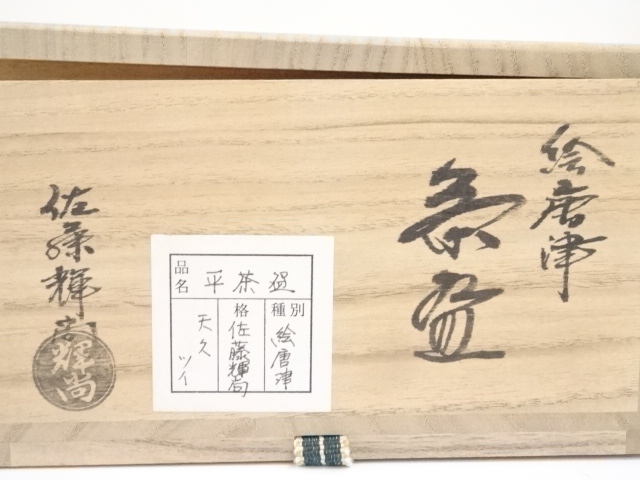 絵唐津
茶盌
佐藤輝尚
輝尚
品名
平茶盌
種別
絵唐津
格
佐藤輝尚
天久
ツイ